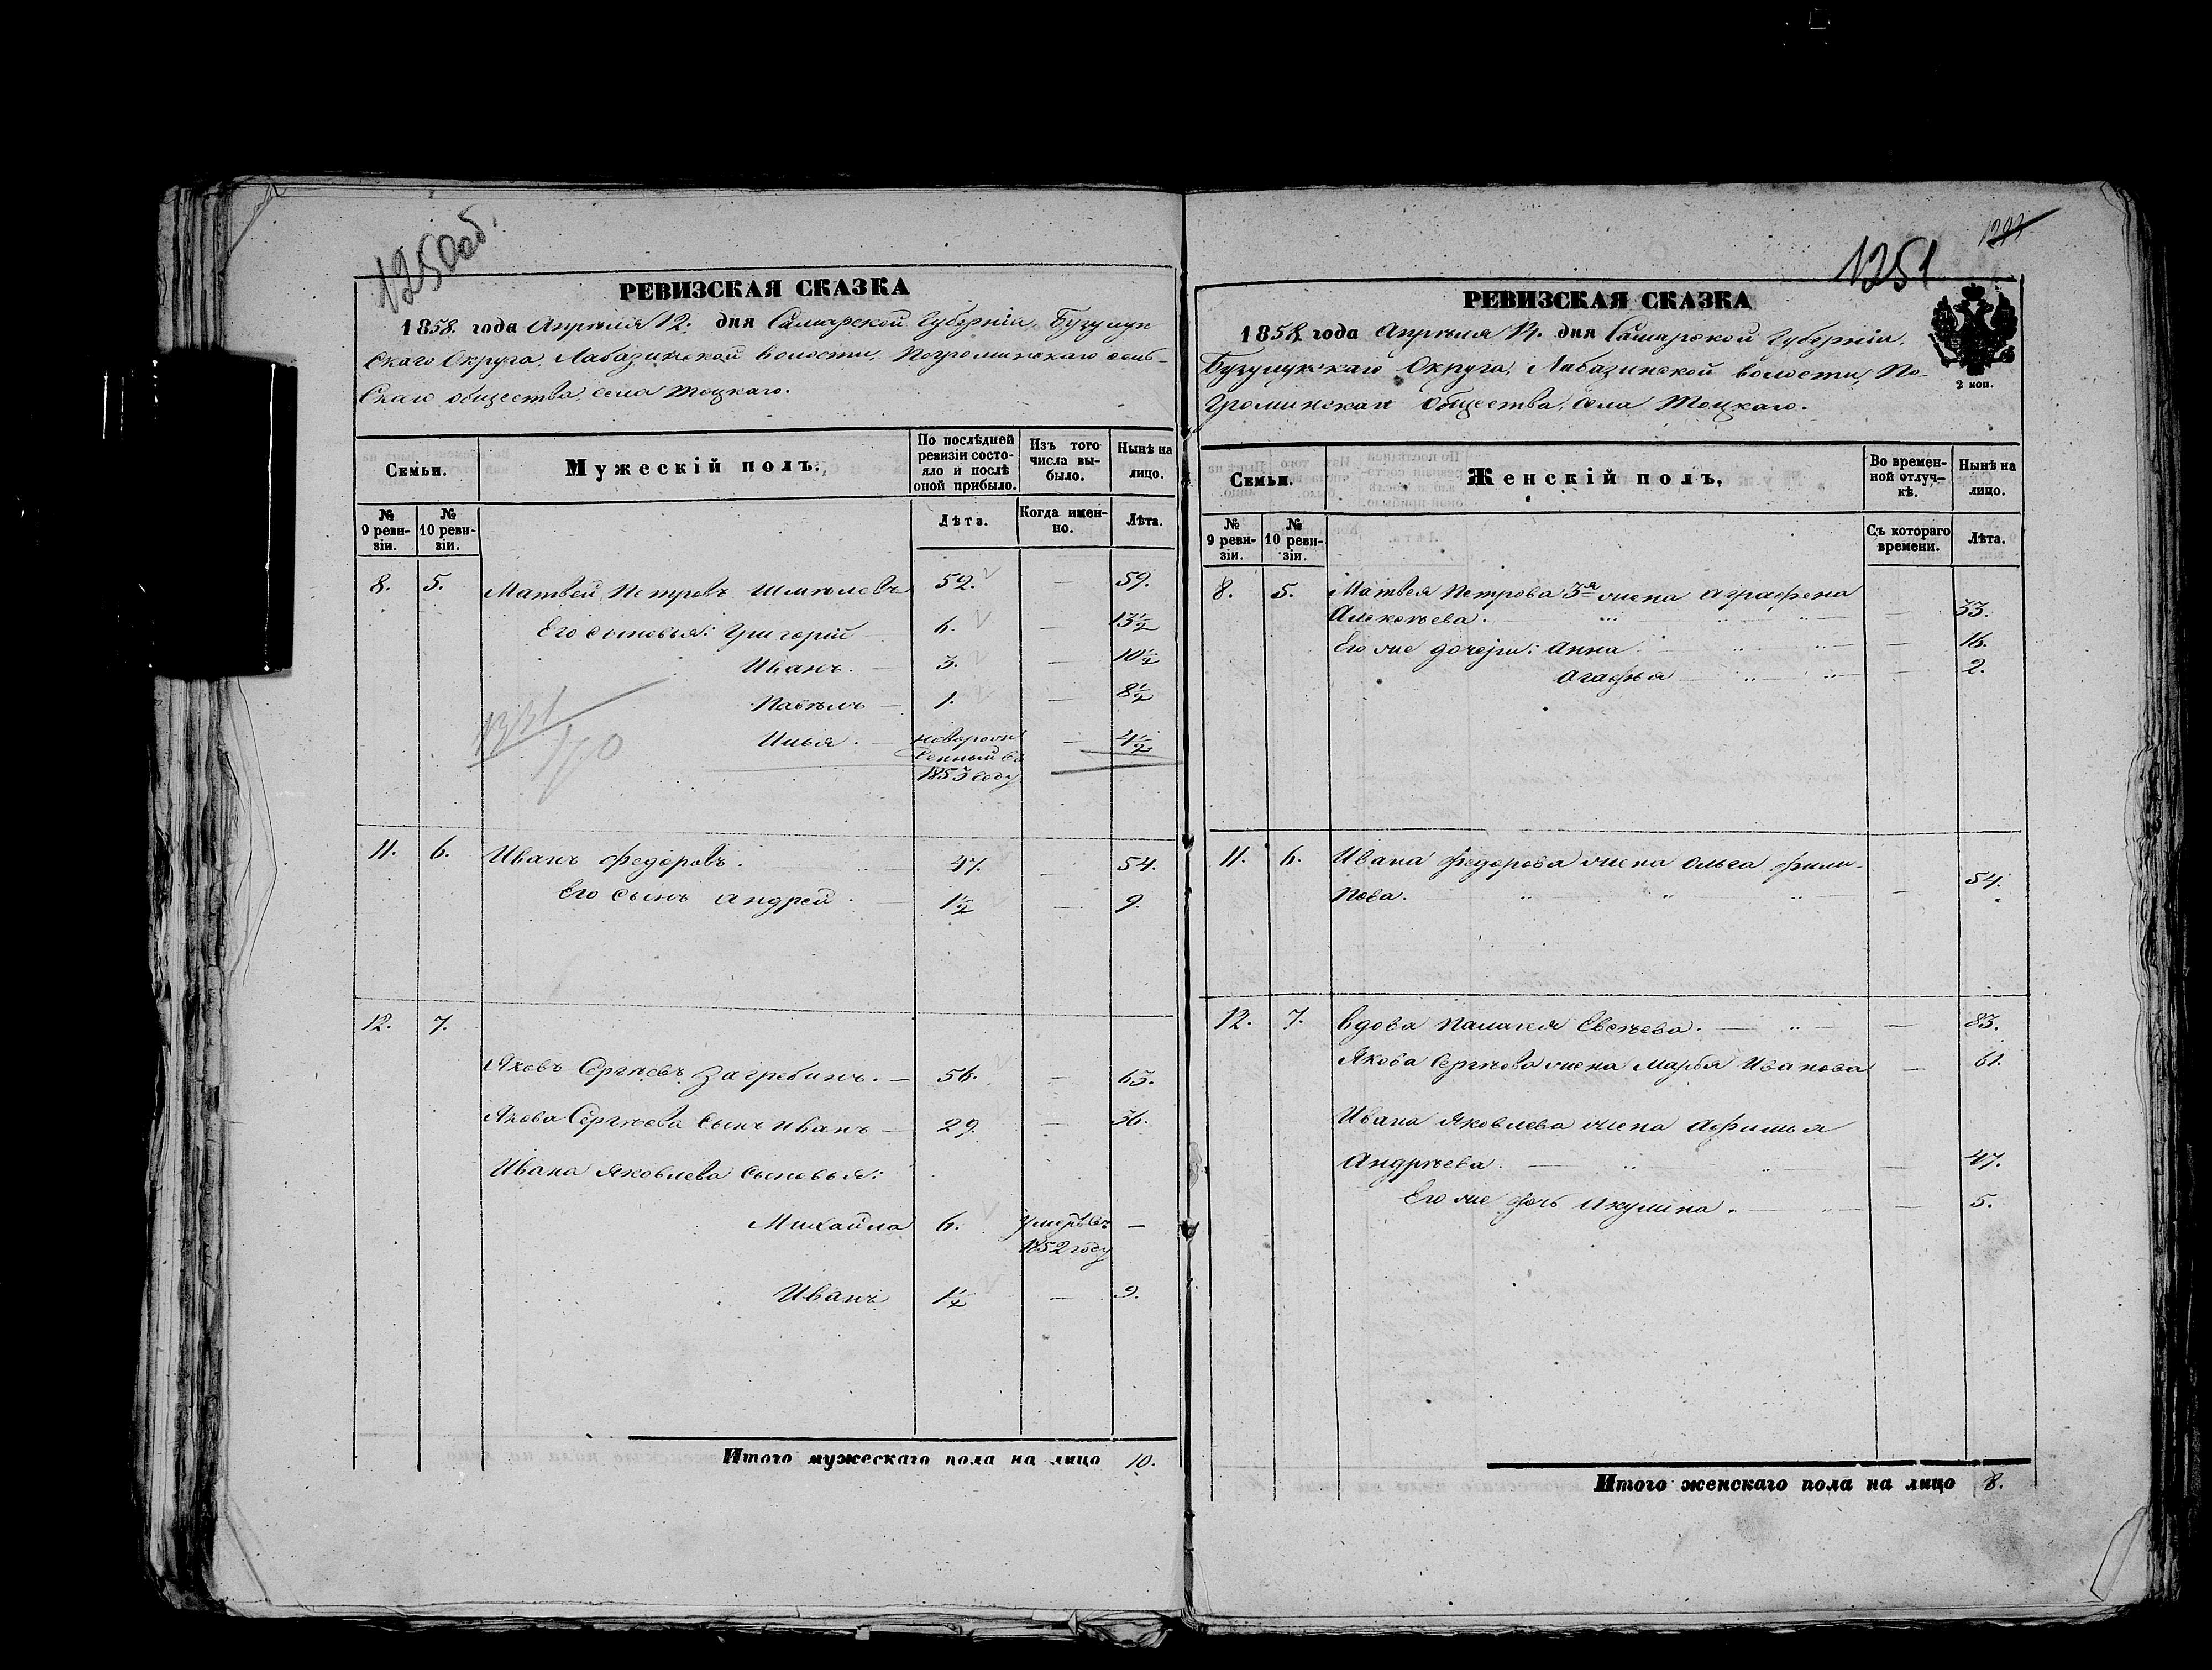 1250 об.
РЕВИЗСКАЯ СКАЗКА
1858. года Апрѣля 12. дня Самарской Губерніи, Бузулук
скаго Округа, Лабазинской волости, Погроминскаго сель-
скаго общества, села Тоцкаго.
Семьи.
Мужескій полъ.
По послѣдней ревизіи состояло и послѣ оной прибыло.
Изъ того числа выбыло.
Нынѣ на лицо.
№ 9 ревизіи.
№ 10 ревизіи.
Лѣта.
Когда именно.
Лѣта.
8. 5. Матвей Петровъ 52. — 59.
Его сыновья: Григорій 6. — 13½
Иванъ. 3. — 10½
Павелъ 1. — 8½
Илья. новорож — 4½
денный въ
1853 году
11. 6. Иванъ Федоровъ. 47. — 54.
Его сынъ Андрей. 1½ — 9.
12. 7.
Яковъ Сергѣевъ Загребинъ. — 56. — 63.
Якова Сергѣева сынъ Иванъ — 29. — 36.
Ивана Яковлева сыновья:
Михайла 6. умеръ въ —
1852 году
Иванъ 1½ — 9.
Итого мужескаго пола на лицо 10.
1251
РЕВИЗСКАЯ СКАЗКА
1858 года Апрѣля 12. дня Самарской Губерніи,
Бузулукскаго Округа, Лабазинской волости, По-
громинскаго общества, села Тоцкаго.
2 коп.
Семьи.
Женскій полъ,
Во временной отлучкѣ.
Нынѣ на лицо.
№ 9 ревизіи.
№ 10 ревизіи.
Съ котораго времени.
Лѣта.
8. 5. Матвея Петрова 3я жена Аграфена
Алексѣева. — 33.
Его же дочери: Анна. — 16.
Агафья — 2.
11. 6. Ивана Федорова жена Ольга Фили-
пова. — 54.
12. 7. Вдова Палагея — 83.
Якова Сергѣева жена Марья Иванова — 61.
Ивана Яковлева жена Афимья
Андрѣева. — 47.
Его же дочь Акулина. — 5.
Итого женскаго пола на лицо 8.